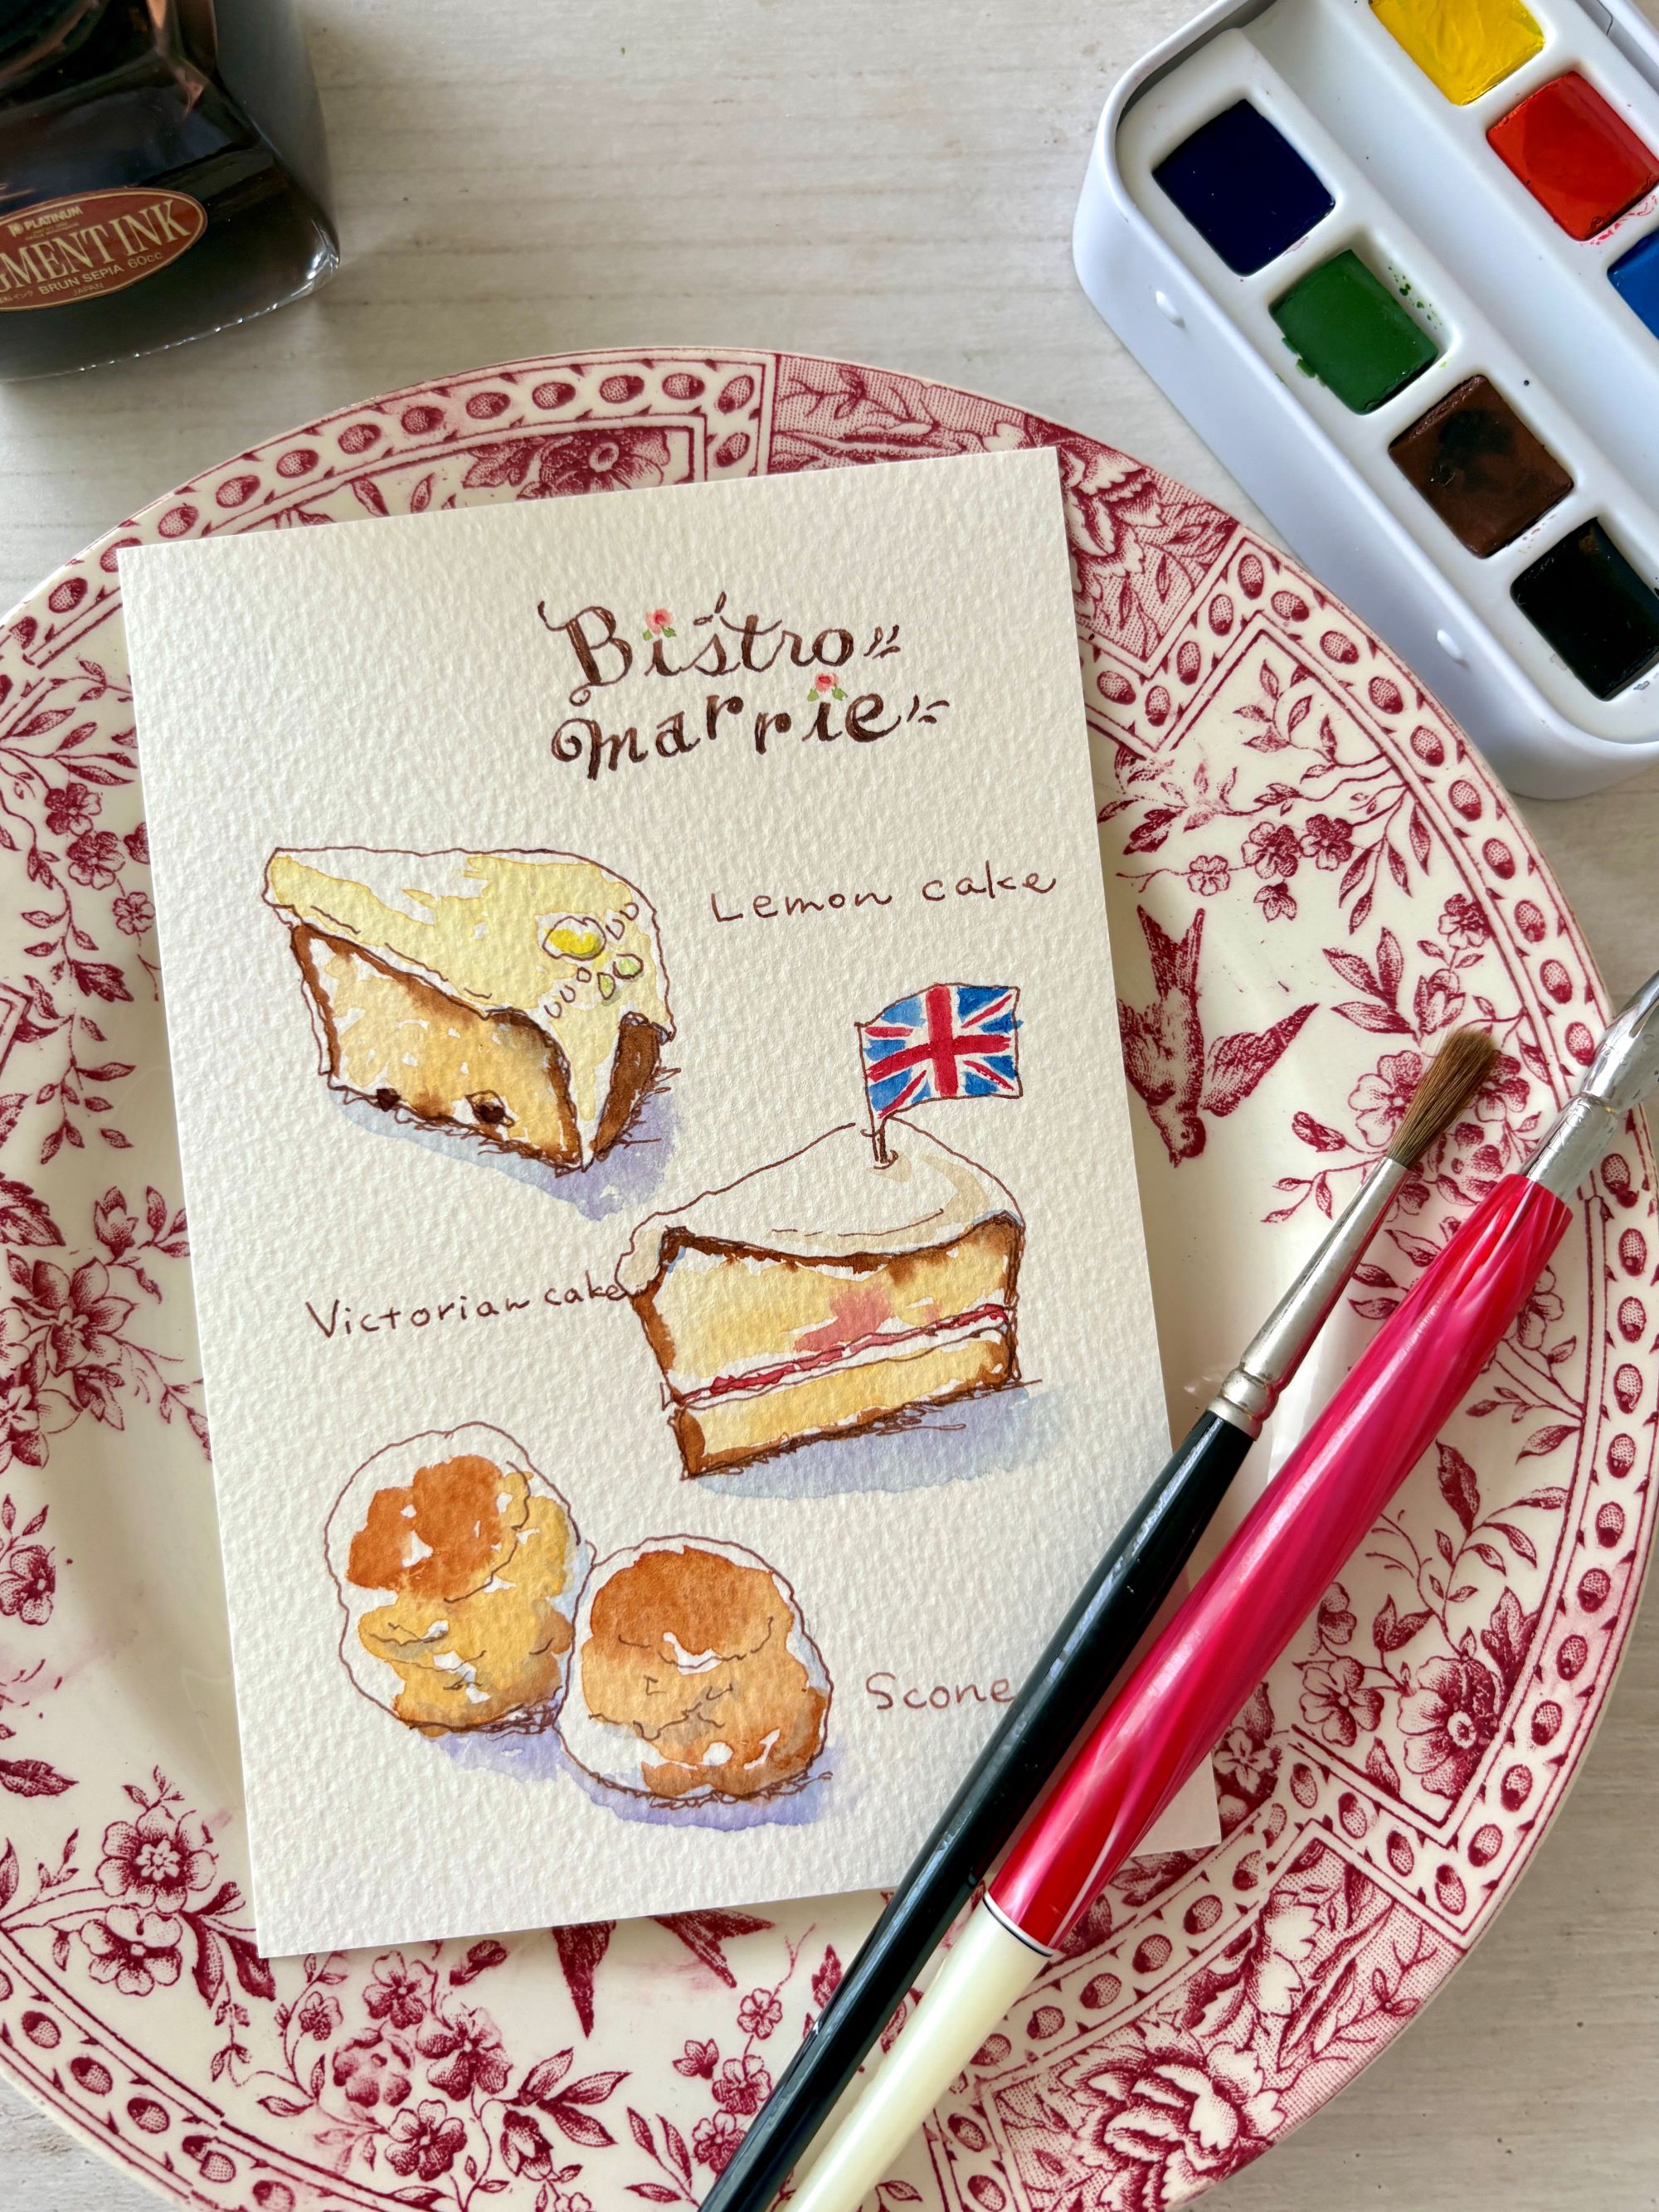 PLATINUM
GMENT INK
BRUN SEPIA 60cc
JAPAN
Bistro
marrie
Lemon cake
Victorian cake
Scone